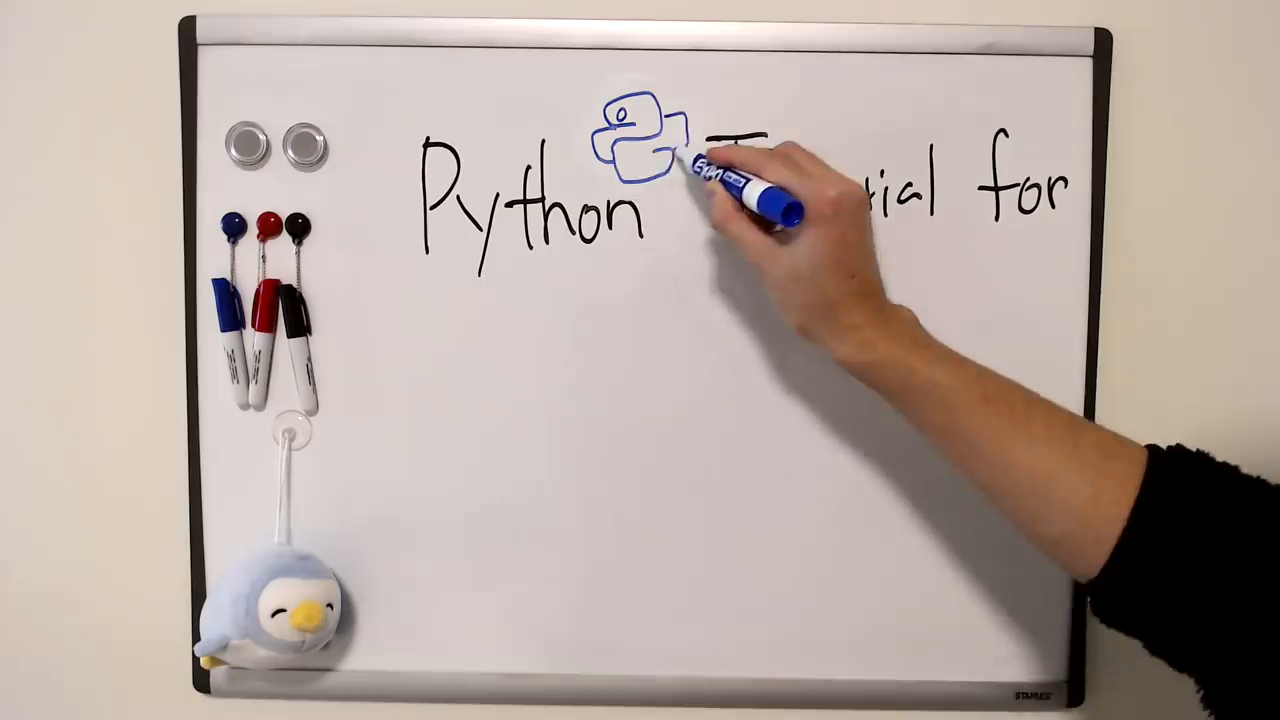 Python T ial for
EXPO
STAPLES